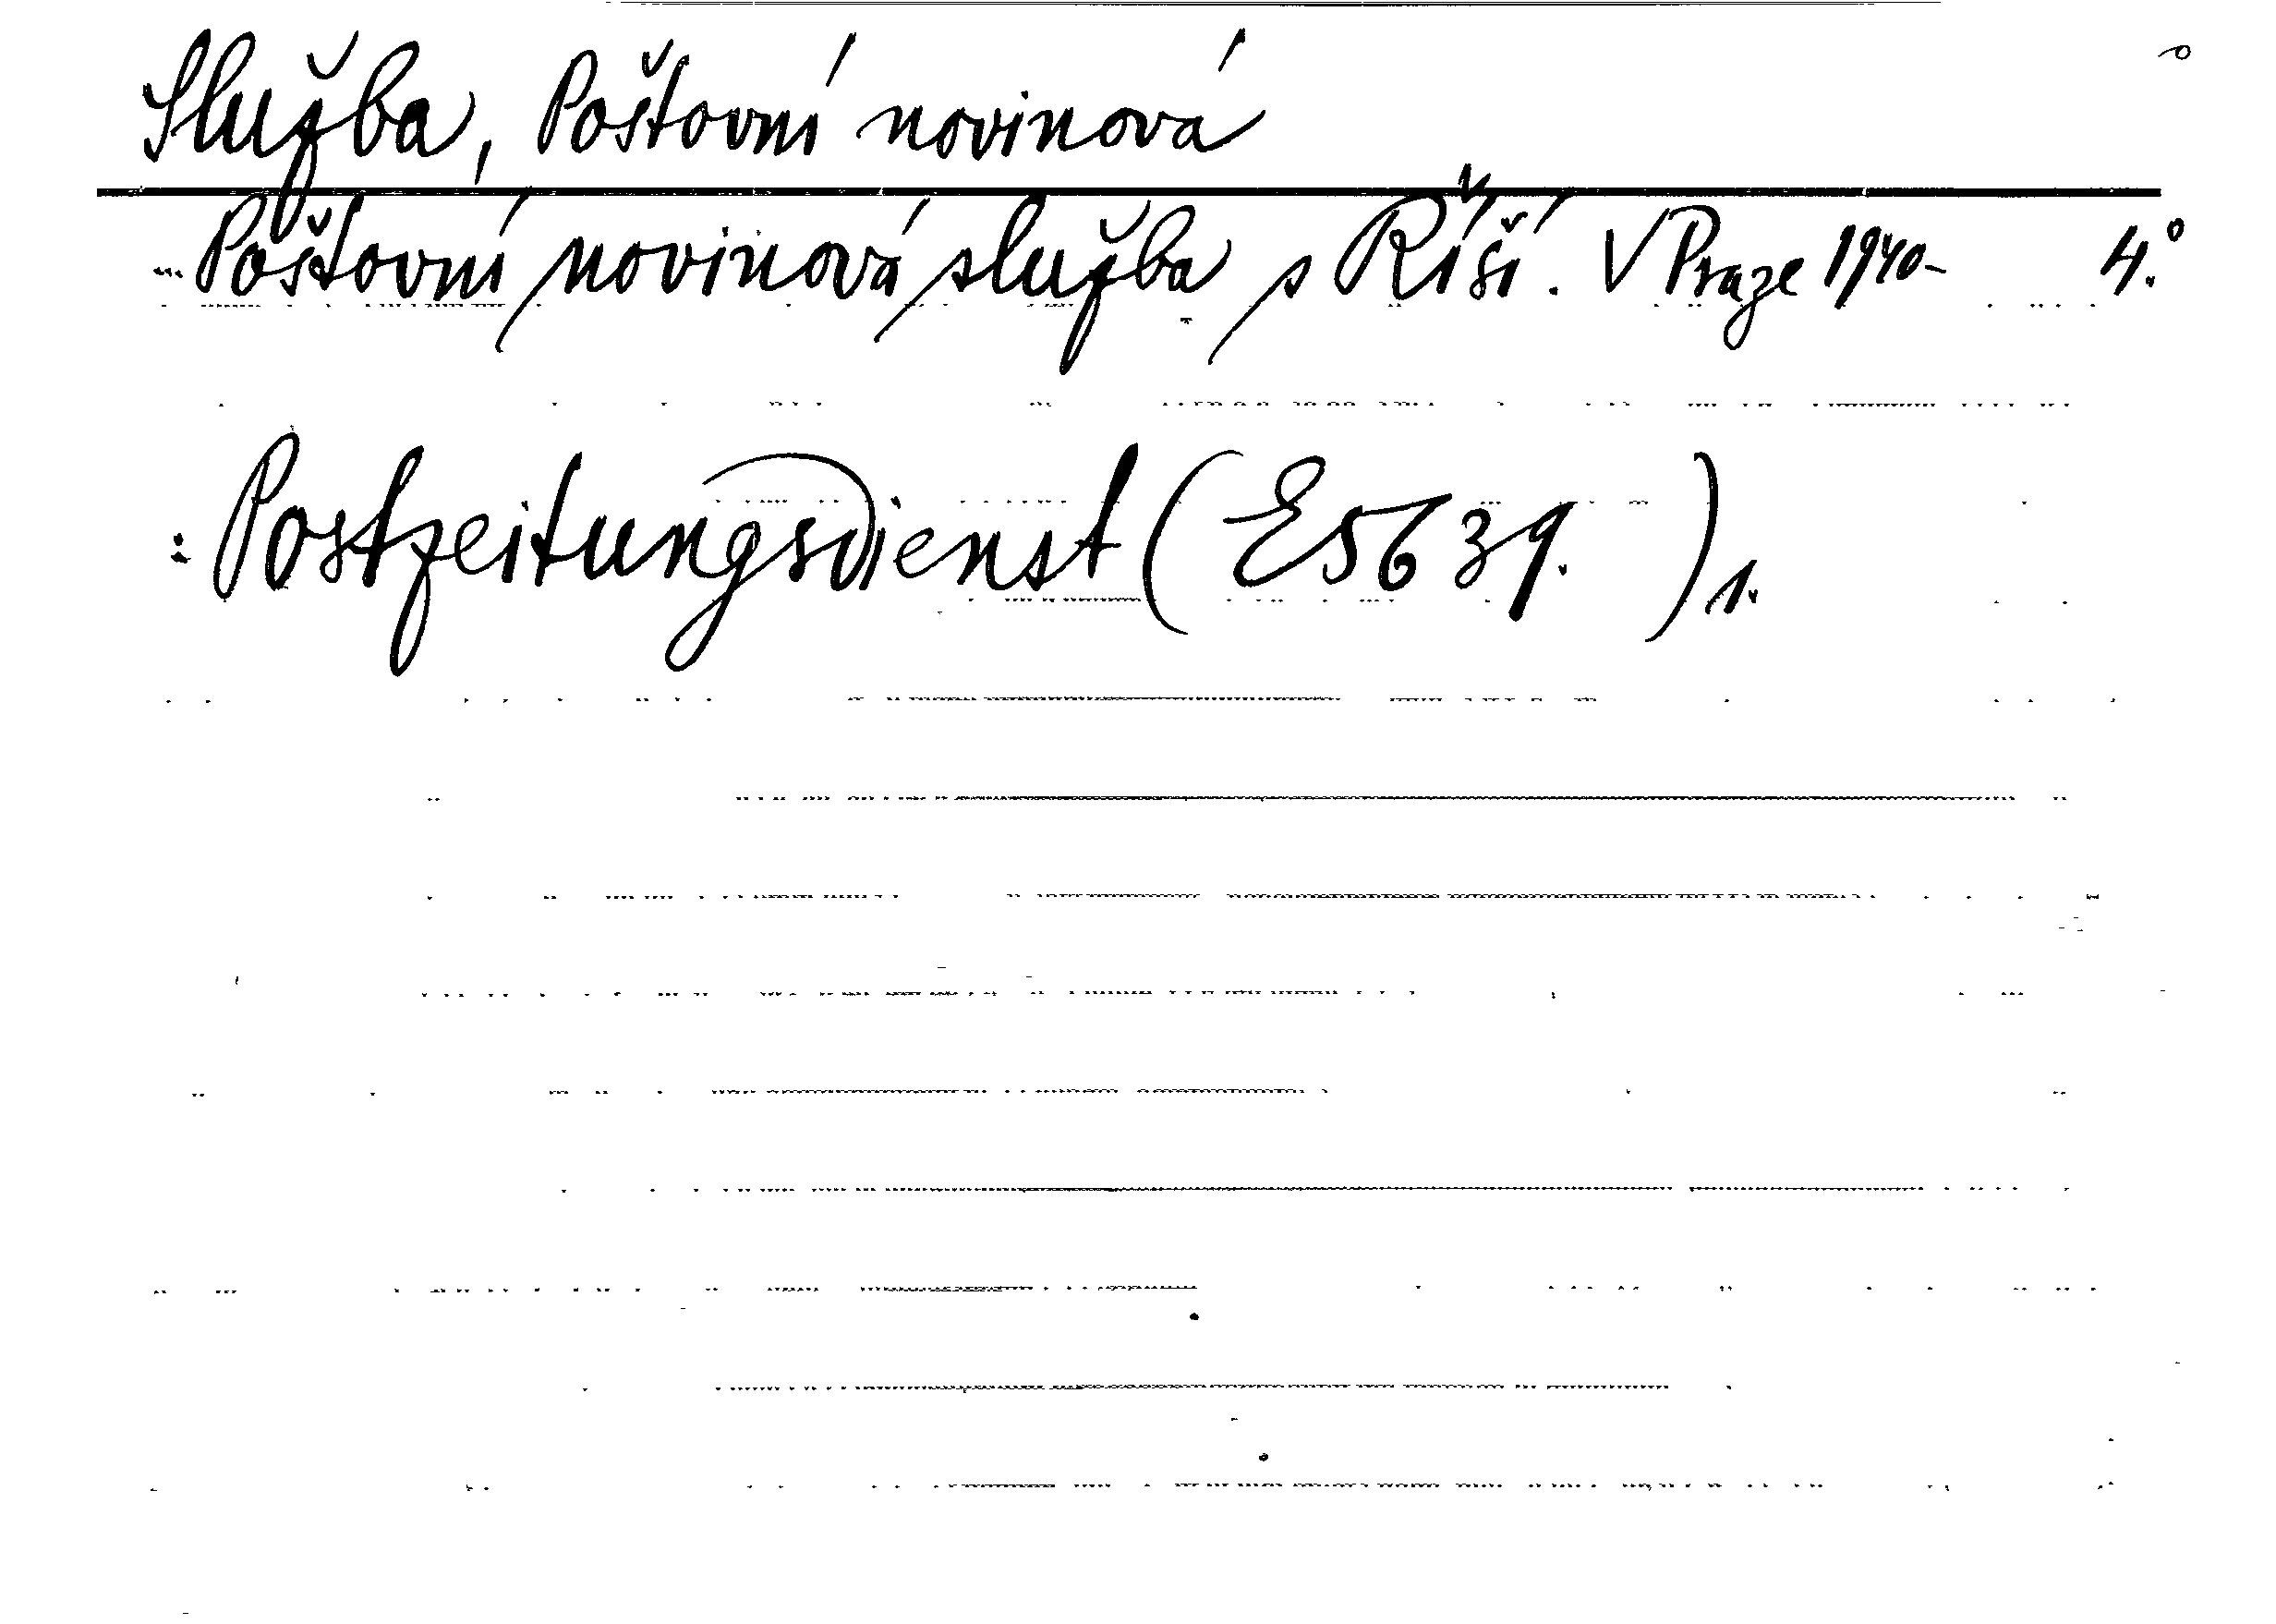 Služba, Poštovní novinová
Poštovní novinová služba s Říší. V Praze 1940- 4.°
: Postzeitungsdienst (E 56 39. ) 1.